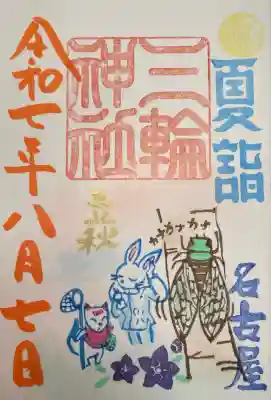 夏詣
三輪
神社
立秋
カナカナカナ
名古屋
令和七年八月七日